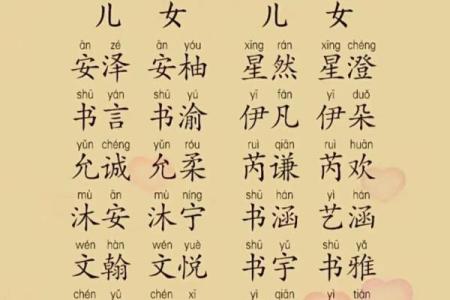 儿 女 儿 女
ān zé ān yòu xīng rán xīng chéng
安泽 安柚 星然 星澄
shū yán shū yú yī fán yī duǒ
书言 书渝 伊凡 伊朵
yǔn chéng yǔn róu ruì qiān ruì huān
允诚 允柔 芮谦 芮欢
mù ān mù níng shū hán yì hán
沐安 沐宁 书涵 艺涵
wén hàn wén yuè shū yǔ shū yǎ
文翰 文悦 书宇 书雅
chén yǔ chén xī yì hán yì tián